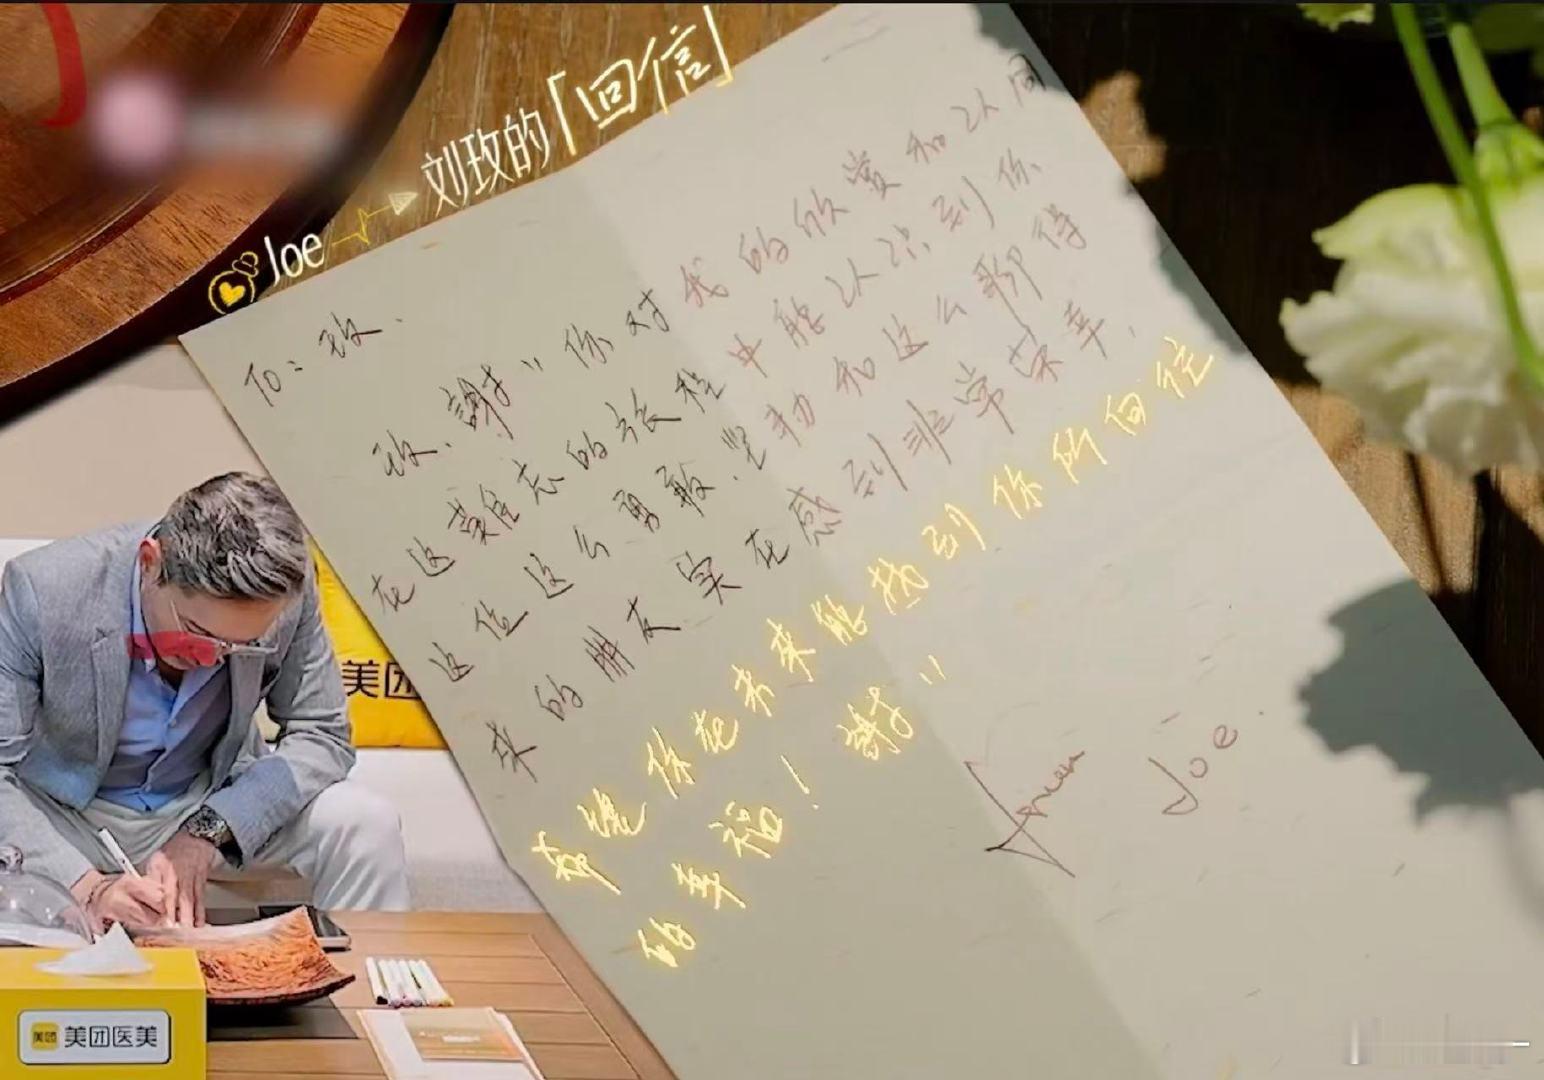 Joe
刘玫的「回信」
To：玫．
玫、謝〃你对我的欣赏和认同
在这趟难忘的旅程中能认识到你
这位这么勇敢．坚韧和这么聊得
来的朋友实在感到非常荣幸，
希望你在未来能找到你所向往
的幸福！謝〃
Joe.
美团
美团 美团医美